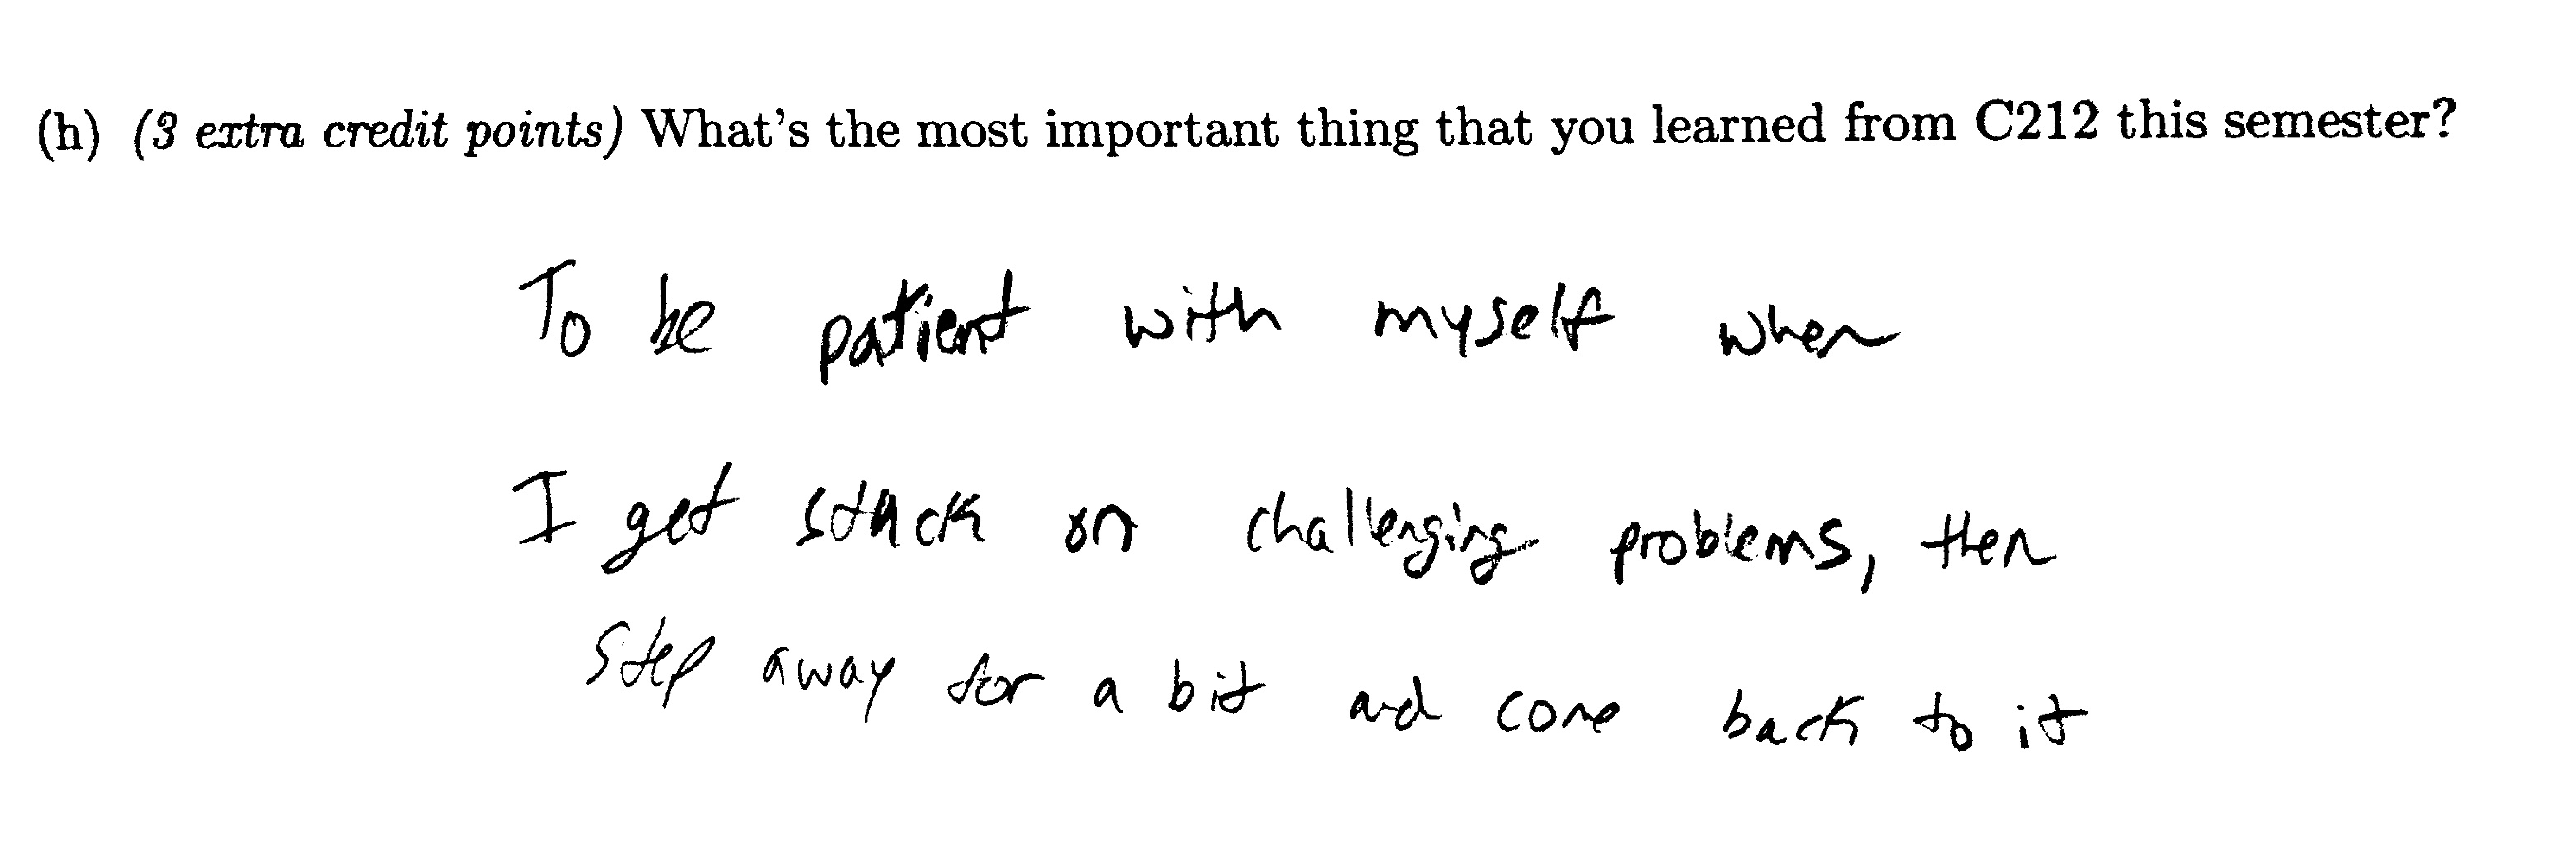 (h) (3 extra credit points) What's the most important thing that you learned from C212 this semester?
To be patient with myself when
I get stuck on challenging problems, then
step away for a bit and come back to it